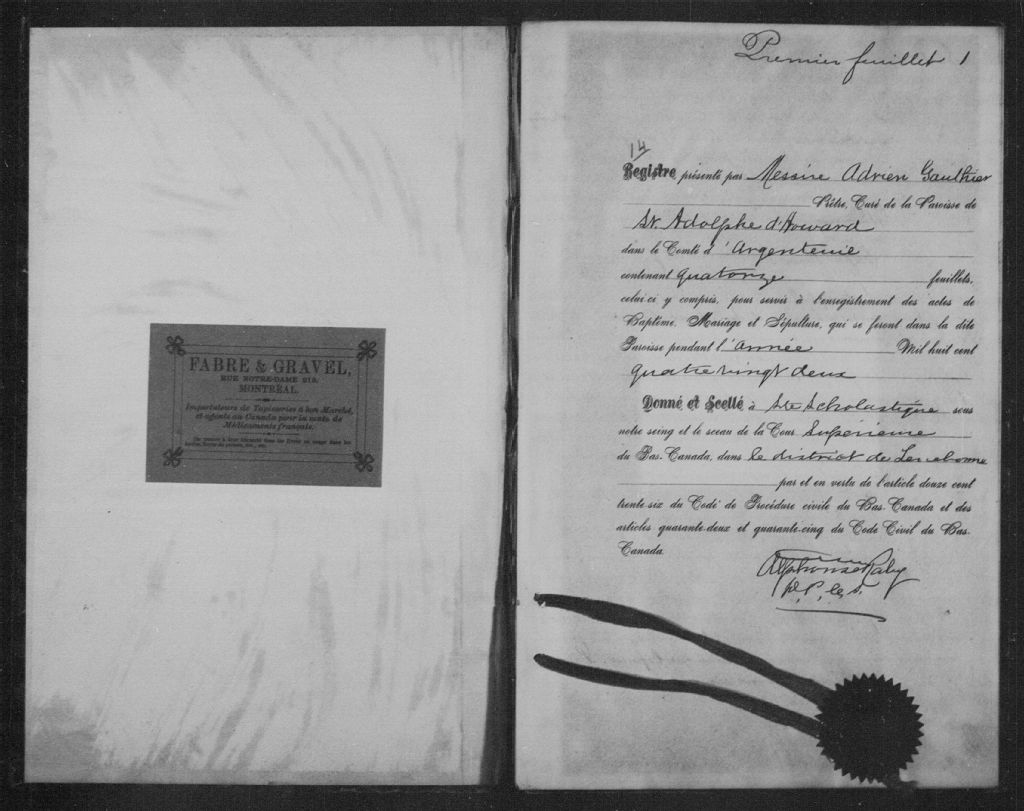 FABRE & GRAVEL,
RUE NOTRE-DAME 219,
MONTRÉAL.
Importateurs de Tapisseries à bon Marché,
et agents au Canada pour la vente de
Médicaments français.
Premier feuillet 1
14
Registre présenté par Messire Adrien Gauthier
Prêtre, Curé de la Paroisse de
St. Adolphe d'Howard
dans le Comté d'Argenteuil
contenant quatorze feuillets,
celui-ci y compris, pour servir à l'enregistrement des actes de
Baptême, Mariage et Sépulture, qui se feront dans la dite
Paroisse pendant l'année Mil huit cent
quatre vingt deux
Donné et Scellé à Ste Scholastique sous
notre seing et le sceau de la Cour Supérieure
du Bas-Canada, dans le district de Terrebonne
par et en vertu de l'article douze cent
trente-six du Code de Procédure civile du Bas-Canada et des
articles quarante-deux et quarante-cinq du Code Civil du Bas-
Canada.